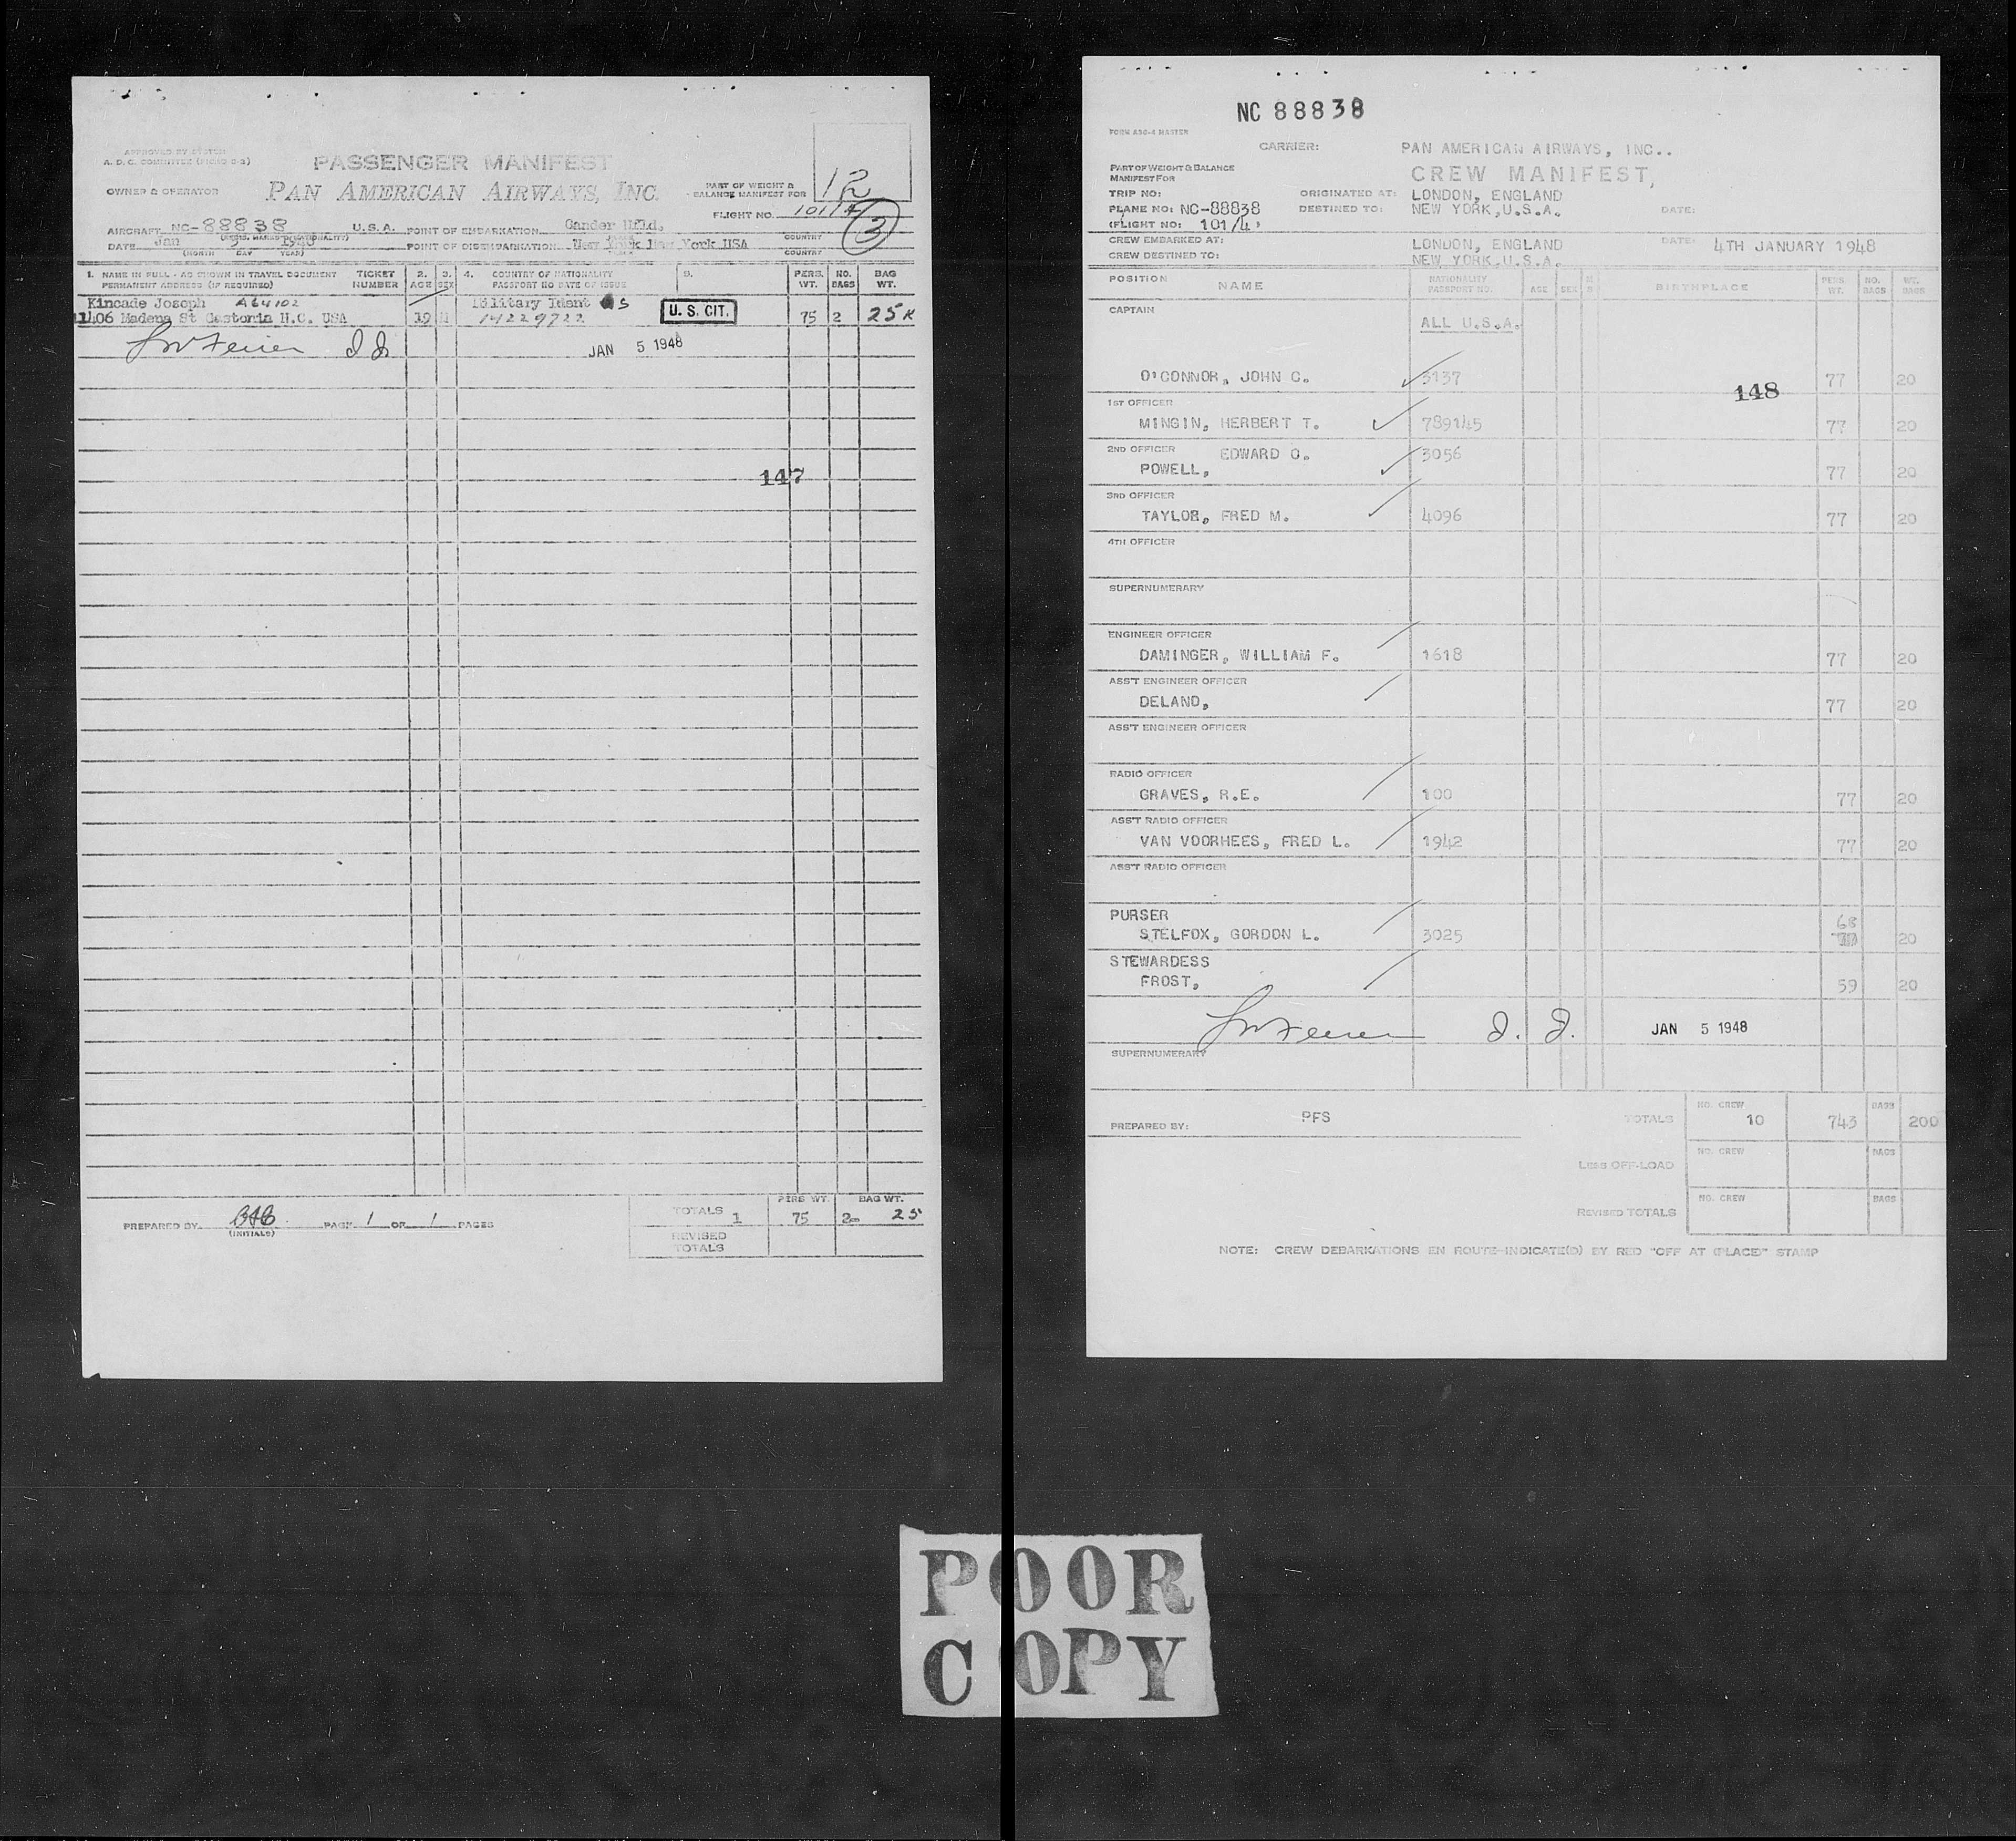 APPROVED BY SYSTEM
A. D. C. COMMITTEE
PASSENGER MANIFEST
OWNER & OPERATOR
PAN AMERICAN AIRWAYS, INC.
PART OF WEIGHT &
BALANCE MANIFEST FOR
12
FLIGHT NO. 101/4
3
AIRCRAFT NC-88838 U.S.A. POINT OF EMBARKATION Gander Nfld.
DATE Jan 5 1948 POINT OF DISEMBARKATION New York New York USA COUNTRY
(MONTH DAY YEAR) COUNTRY
1. NAME IN FULL - AS SHOWN IN TRAVEL DOCUMENT TICKET 2. 3. 4. COUNTRY OF NATIONALITY 5. PERS. NO. BAG
PERMANENT ADDRESS (IF REQUIRED) NUMBER AGE SEX PASSPORT NO DATE OF ISSUE WT. BAGS WT.
Kincade Joseph A64102 Military Ident
1406 Madena St Gastonia N.C. USA 19 M 14229722 U. S. CIT. 75 2 25 K
JAN 5 1948
147
PREPARED BY (INITIALS) PAGE 1 OF 1 PAGES
PERS WT. BAG WT.
TOTALS 1 75 2 25
REVISED
TOTALS
NC 88838
FORM ADC-4 MASTER
CARRIER: PAN AMERICAN AIRWAYS, INC..
PART OF WEIGHT & BALANCE
MANIFEST FOR
CREW MANIFEST,
TRIP NO: ORIGINATED AT: LONDON, ENGLAND
PLANE NO: NC-88838 DESTINED TO: NEW YORK,U.S.A. DATE:
(FLIGHT NO: 101/4)
CREW EMBARKED AT: LONDON, ENGLAND DATE: 4TH JANUARY 1948
CREW DESTINED TO: NEW YORK,U.S.A.
POSITION NAME NATIONALITY PASSPORT NO. AGE SEX BIRTHPLACE PERS. WT. NO. BAGS WT. BAGS
CAPTAIN
ALL U.S.A.
O'CONNOR, JOHN C. 3137 77 20
148
1ST OFFICER
MINGIN, HERBERT T. 789145 77 20
2ND OFFICER EDWARD O. 3056
POWELL, 77 20
3RD OFFICER
TAYLOR, FRED M. 4096 77 20
4TH OFFICER
SUPERNUMERARY
ENGINEER OFFICER
DAMINGER, WILLIAM F. 1618 77 20
ASS'T ENGINEER OFFICER
DELAND, 77 20
ASS'T ENGINEER OFFICER
RADIO OFFICER
GRAVES, R.E. 100 77 20
ASS'T RADIO OFFICER
VAN VOORHEES, FRED L. 1942 77 20
ASS'T RADIO OFFICER
PURSER 68
STELFOX, GORDON L. 3025 20
STEWARDESS
FROST, 59 20
JAN 5 1948
SUPERNUMERARY
PREPARED BY: PFS
TOTALS NO. CREW 10 743 BAGS 200
LESS OFF-LOAD NO. CREW BAGS
REVISED TOTALS NO. CREW BAGS
NOTE: CREW DEBARKATIONS EN ROUTE-INDICATE(D) BY RED "OFF AT (PLACE)" STAMP
POOR
COPY